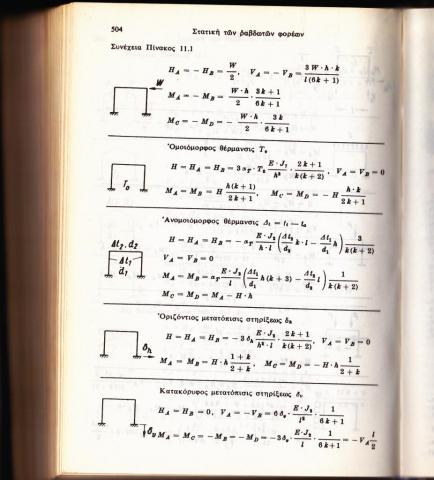 504
Στατικὴ τῶν ῥαβδωτῶν φορέων
Συνέχεια Πίνακος 11.1
H_A = − H_B = W/2 , V_A = − V_B = 3 W · h · k / l (6k + 1)
W
M_A = − M_B = W · h / 2 · 3k + 1 / 6k + 1
M_C = − M_D = − W · h / 2 · 3k / 6k + 1
Ὁμοιόμορφος θέρμανσις T_0
T_0
H = H_A = H_B = 3 α_T · T_0 E · J_1 / h² · 2k + 1 / k(k + 2) , V_A = V_B = 0
M_A = M_B = H h(k + 1) / 2k + 1 , M_C = M_D = − H h · k / 2k + 1
Ἀνομοιόμορφος θέρμανσις Δ_t = t_i − t_a
Δt_2 . d_2
Δt_1
d_1
H = H_A = H_B = − α_T E · J_2 / h · l ( Δt_2 / d_2 k · l − Δt_1 / d_1 h ) 3 / k(k + 2)
V_A = V_B = 0
M_A = M_B = α_T E · J_2 / l ( Δt_1 / d_1 h (k + 3) − Δt_2 / d_2 l ) 1 / k(k + 2)
M_C = M_D = M_A − H · h
Ὁριζόντιος μετατόπισις στηρίξεως δ_h
δ_h
H = H_A = H_B = − 3 δ_h E · J_2 / h² · l · 2k + 1 / k(k + 2) , V_A = V_B = 0
M_A = M_B = H · h 1 + k / 2 + k , M_C = M_D = − H · h 1 / 2 + k
Κατακόρυφος μετατόπισις στηρίξεως δ_v
H_A = H_B = 0, V_A = − V_B = 6 δ_v · E · J_2 / l³ · 1 / 6k + 1
δ_v M_A = M_C = − M_B = − M_D = − 3 δ_v · E · J_2 / l · 1 / 6k + 1 = − V_A l / 2